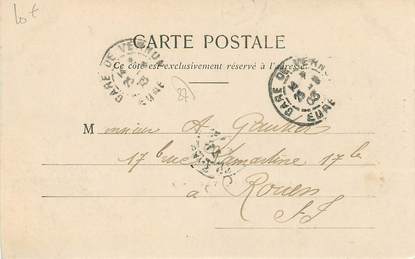 Lot
CARTE POSTALE
Ce côté est exclusivement réservé à l'adresse.
GARE DE VERNON
GARE DE VERNON
EURE
37
Monsieur A.
17 bis rue Lamartine 17 bis
à Rouen